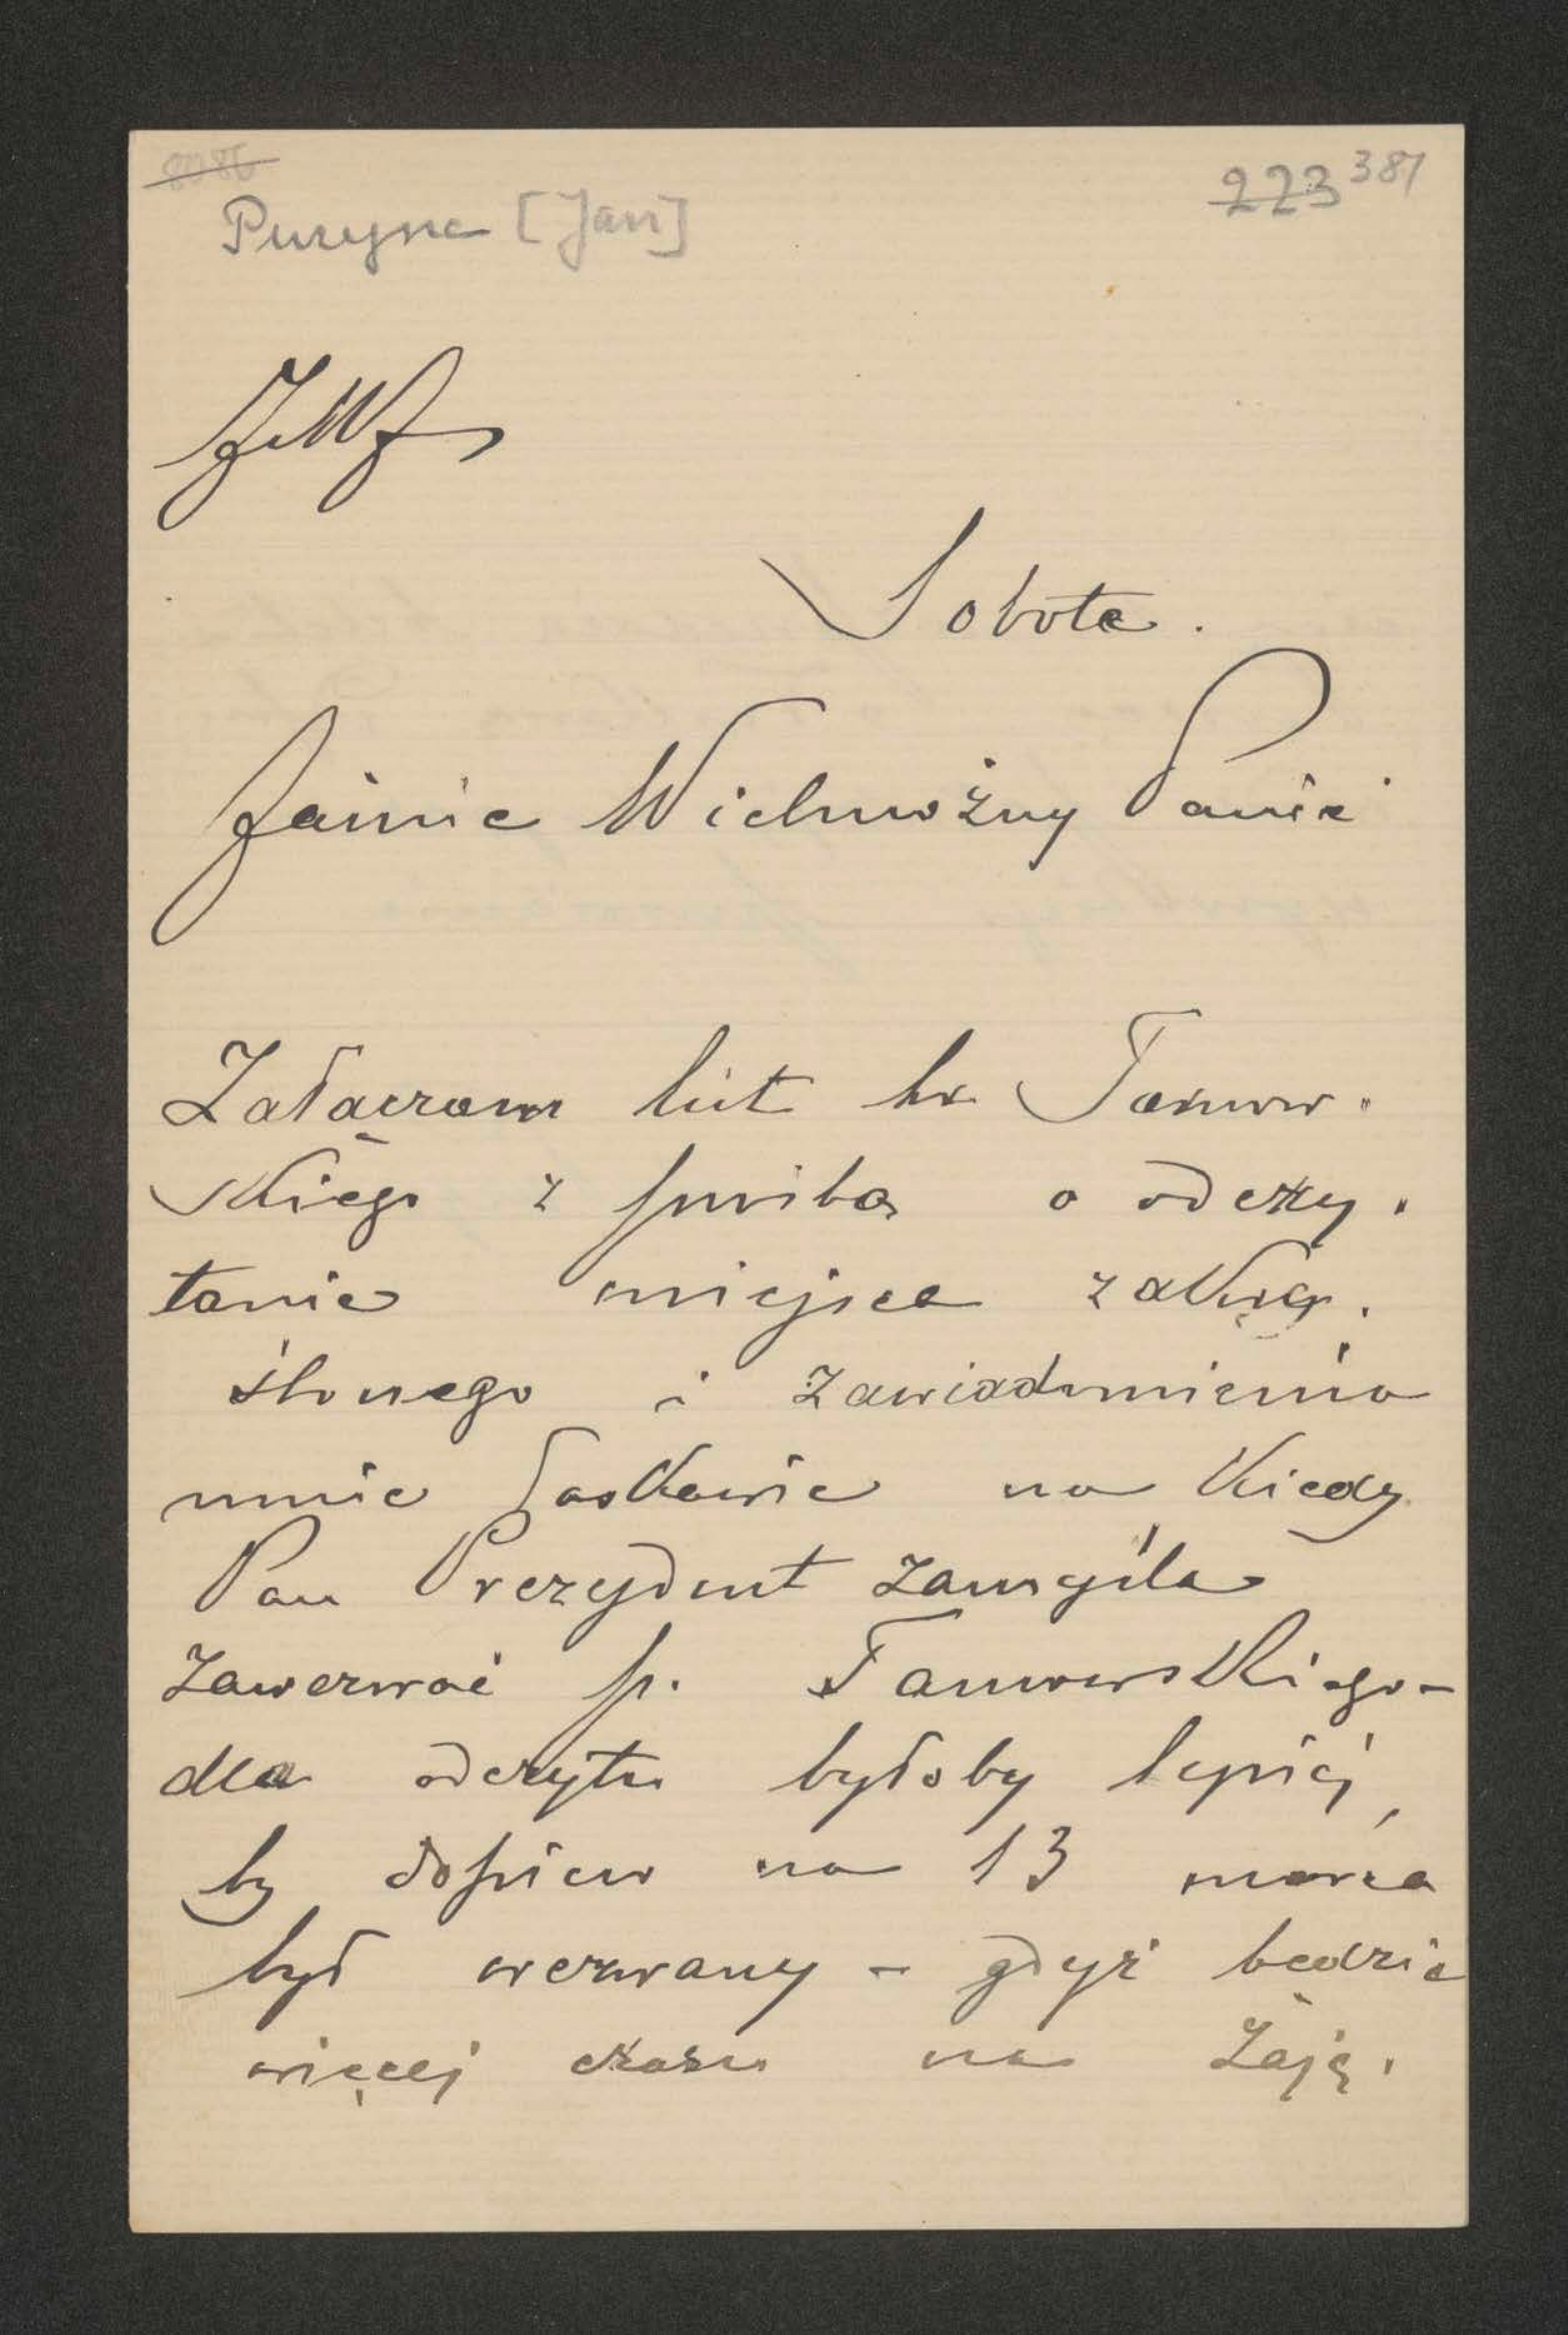 Puzyna [Jan]
223 381
Sobota.
Jaśnie Wielmożny Panie
Załączam list hr. Tarnow-
skiego z prośbą o odczy-
tanie miejsca zakre-
ślonego i zawiadomienia
mnie łaskawie na kiedy
Pan Prezydent zamyśla
zawezwać p. Tarnowskiego -
dla odczytu byłoby lepiej,
by dopiero na 13 marca
był wezwany - gdyż będzie
więcej czasu na